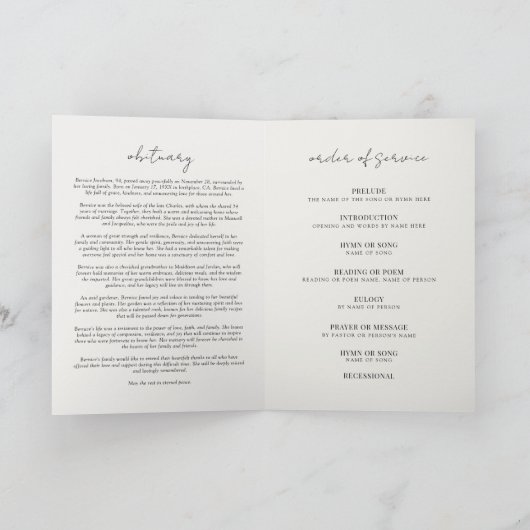 obituary
Bernice Jacobson, 94, passed away peacefully on November 28, surrounded by
her loving family. Born on January 17, 19XX in birthplace, CA. Bernice lived a
life full of grace, kindness, and unwavering love for those around her.
Bernice was the beloved wife of the late Charles, with whom she shared 54
years of marriage. Together, they built a warm and welcoming home where
friends and family always felt cherished. She was a devoted mother to Maxwell
and Jacqueline, who were the pride and joy of her life.
A woman of great strength and resilience, Bernice dedicated herself to her
family and community. Her gentle spirit, generosity, and unwavering faith were
a guiding light to all who knew her. She had a remarkable talent for making
everyone feel special and her home was a sanctuary of comfort and love.
Bernice was also a cherished grandmother to Maddison and Jordan, who will
forever hold memories of her warm embraces, delicious meals, and the wisdom
she imparted. Her great grandchildren were blessed to know her love and
guidance, and her legacy will live on through them.
An avid gardener, Bernice found joy and solace in tending to her beautiful
flowers and plants. Her garden was a reflection of her nurturing spirit and love
for nature. She was also a talented cook, known for her delicious family recipes
that will be passed down for generations.
Bernice's life was a testament to the power of love, faith, and family. She leaves
behind a legacy of compassion, resilience, and joy that will continue to inspire
those who were fortunate to know her. Her memory will forever be cherished in
the hearts of her family and friends.
Bernice's family would like to extend their heartfelt thanks to all who have
offered their love and support during this difficult time. She will be deeply missed
and lovingly remembered.
May she rest in eternal peace.
order of service
PRELUDE
THE NAME OF THE SONG OR HYMN HERE
INTRODUCTION
OPENING AND WORDS BY NAME HERE
HYMN OR SONG
NAME OF SONG
READING OR POEM
READING OR POEM NAME. NAME OF PERSON
EULOGY
BY NAME OF PERSON
PRAYER OR MESSAGE
BY PASTOR OR PERSON'S NAME
HYMN OR SONG
NAME OF SONG
RECESSIONAL